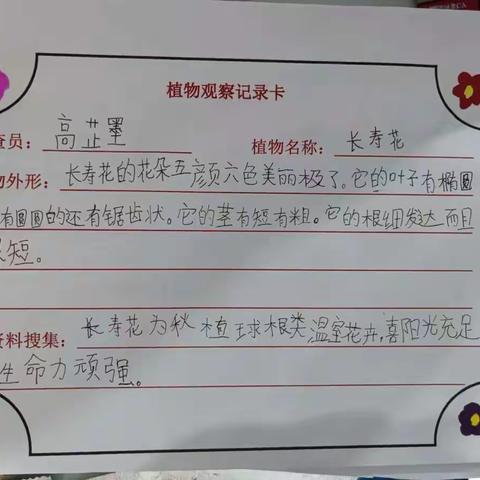 植物观察记录卡
查员：高芷墨 植物名称：长寿花
物外形：长寿花的花朵五颜六色美丽极了。它的叶子有椭圆
有圆圆的还有锯齿状。它的茎有短有粗。它的根细发达而且
短。
资料搜集：长寿花为秋植球根类温室花卉，喜阳光充足
生命力顽强。